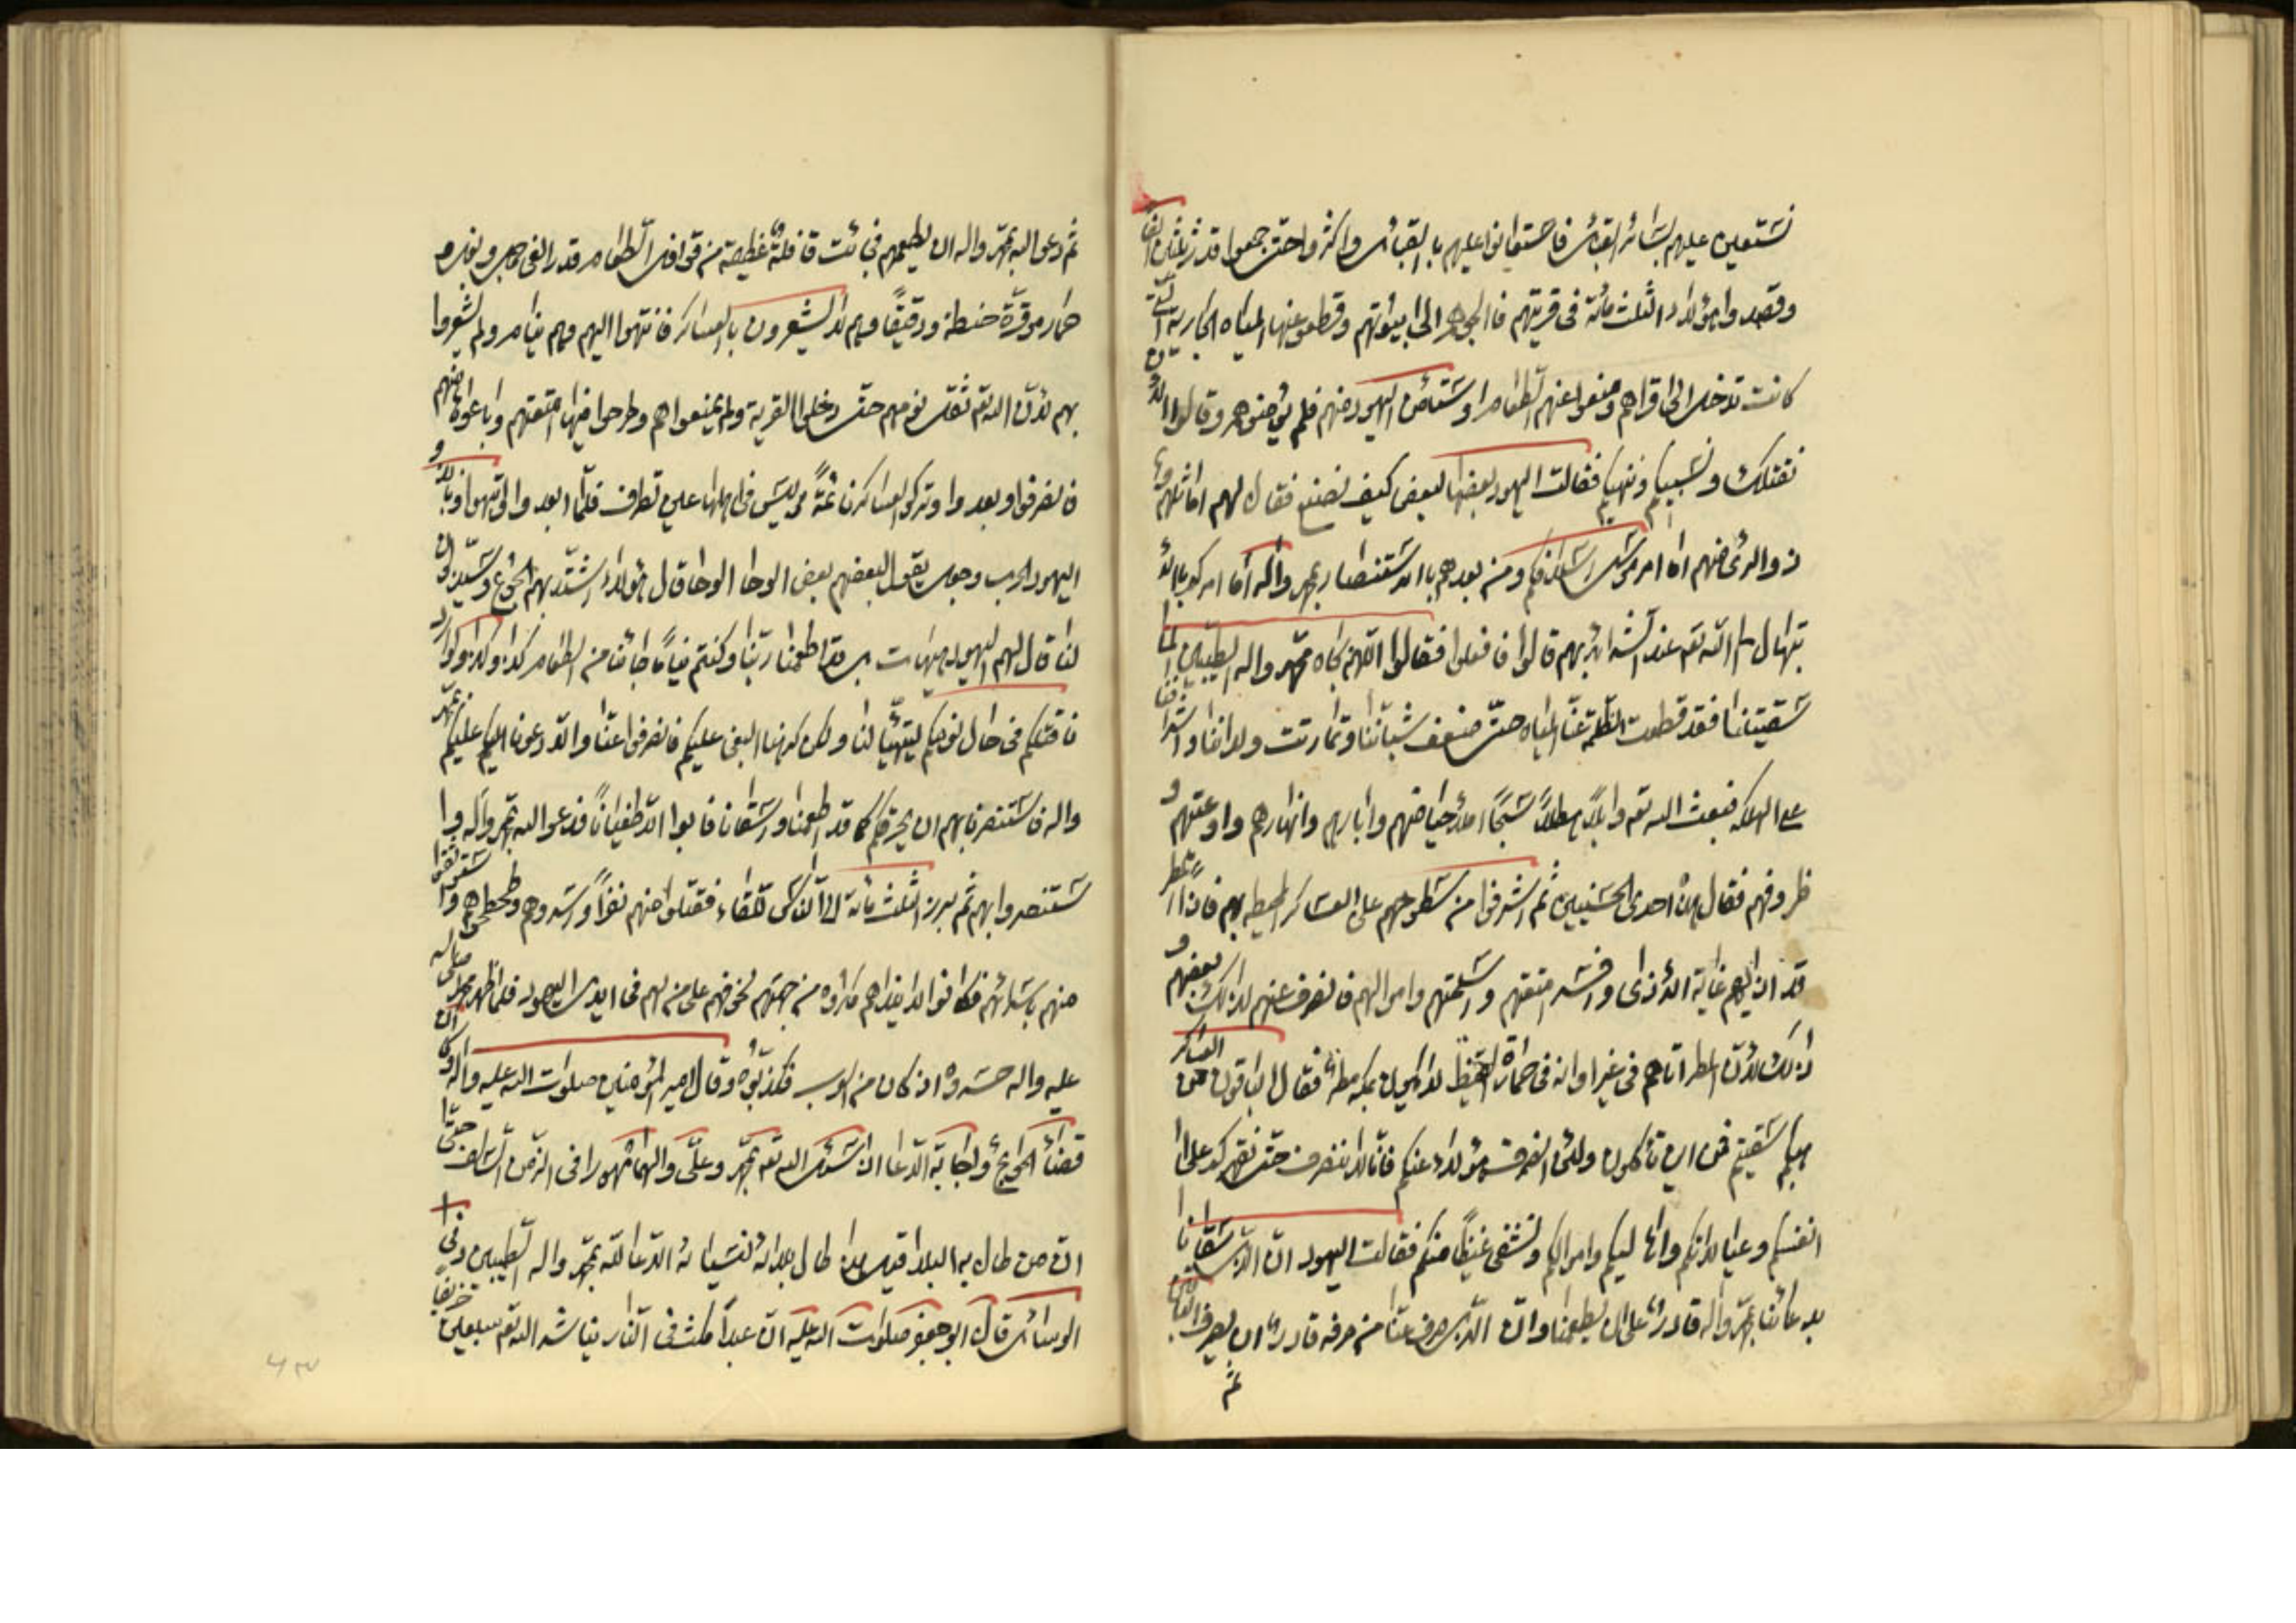 نستعین علیهم بسائر القبائل فاستعانوا علیهم بالقبائل واکثروا حتی جمعوا قدر ثلثین الفا
وقصدوا هؤلاء الثلث مائة فی قریتهم فالجؤهم الی بیوتهم وقطعوا عنها المیاه الجاریة التی
کانت تدخل الی قراهم ومنعوا عنهم الطعام واستأمن الیهود منهم فلم یؤمنوهم وقالوا لا الا ان
نقتلکم ونسبیکم وننهبکم فقالت الیهود بعضها لبعض کیف نصنع فقال لهم اماثلهم و
ذو الرأی منهم اما امر موسی اسلافکم ومن بعدهم بالاستنصار بمحمد واله اما امرکم بالا
بتهال الی الله تعم عند الشدائد بهم قالوا بلی قالوا فافعلوا فقالوا اللهم بجاه محمد واله الطیبین لما
سقیتنا فقد قطعت الظلمة عنا المیاه حتی ضعف شباننا وتماوتت ولداننا واشرفنا
علی الهلکة فبعث الله تعم وابلا هطلا سحا املأ حیاضهم وابارهم وانهارهم واوعیتهم و
ظروفهم فقال هذه احدی الحسنیین ثم اشرفوا من سطوحهم علی العساکر المحیطة بهم فاذا المطر
قد اذاهم غایة الاذی وافسد امتعتهم واسلحتهم واموالهم فانصرف عنهم لذلک بعضهم و
ذلک لان المطر اتاهم فی غیر اوانه فی حمارة القیظ لا یکون بمکة مطر فقال الباقون من العساکر
هبکم سقیتم فمن این تأکلون ولئن انصرف هؤلاء عنکم فانا لا ننصرف حتی نقهرکم علی ا
انفسکم وعیالاتکم واهالیکم واموالکم ونشفی غیظا منکم فقالت الیهود ان الذی سقانا
بدعائنا بمحمد واله قادر علی ان یطعمنا وان الذی صرف عنا من صرفه قادر ان یصرف الباقین
ثم
ثم دعوا الله بمحمد واله ان یطعمهم فجائت قافلة عظیمة من قوافل الطعام قدر الفی جمل وبغل و
حمار موقرة حنطة ودقیقا وهم لا یشعرون بالعساکر فانتهوا الیهم وهم نیام ولم یشعروا
بهم لان الله تعم ثقل نومهم حتی دخلوا القریة ولم یمنعوهم وطرحوا فیها امتعتهم وباعوها منهم
فانصرفوا وبعدوا وترکوا العساکر نائمة لیس فی اهلها عین تطرف فلما بعدوا انتبهوا ونابذوا
الیهود الحرب وجعل یقول بعضهم لبعض الوحا الوحا قال هؤلاء اشتد بهم الجوع وسیذلون
لنا قال لهم الیهود هیهات بل قد اطعمنا ربنا وکنتم نیاما جائنا من الطعام کذا وکذا ولو اردنا
قتلکم فی حال نومکم لیتهیأ لنا ولکن کرهنا البغی علیکم فانصرفوا عنا والا دعونا علیکم بمحمد
واله واستنصرنا بهم ان یخزیکم کما قد اطعمنا وسقانا فابوا الا طغیانا فدعوا الله بمحمد واله وا
ستنصروا بهم ثم برز الثلث مائة الی الناس للقاء فقتلوا منهم نفرا واسروهم وطحطحوهم واستوثقوا
منهم باسرائهم فکانوا لا ینداهم مکروه من جهتهم لخوفهم علی من لهم فی ایدی الیهود فلما ظهر محمد صلی الله
علیه واله حسدوه اذ کان من العرب فکذبوه وقال امیر المؤمنین صلوات الله علیه واله
قضاء الحوائج واجابة الدعا ان تسئل الله تعم بمحمد وعلی والهما
ان من طال به البلا الدعا لله بمحمد واله الطیبین وفی
الوسائل قال ابو جعفر صلوات الله علیه ان عبدا مکث فی النار یناشد الله تعم سبعین خریفا